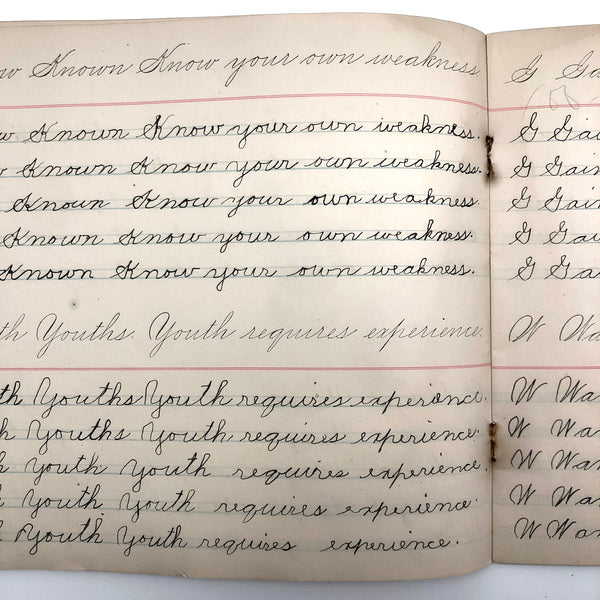 ow Known Know your own weakness.
w Known Know your own weakness.
w Known Know your own weakness.
Known Know your own weakness.
Known Know your own weakness.
Known Know your own weakness.
th Youths. Youth requires experience.
th Youths Youth requires experience.
h Youths Youth requires experience.
h Youth Youth requires experience.
h youth Youth requires experience.
Youth Youth requires experience.
G Ga
G Gai
G Gain
G Gain
G Gai
G Ga
W Wa
W Wa
W War
W War
W Wa
W War